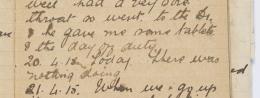 well had a very sore
throat so went to the Dr.
& he gave me some tablets
& the day off duty
20. 4. 15. Today. There was
nothing doing
21. 4. 15. When we go up